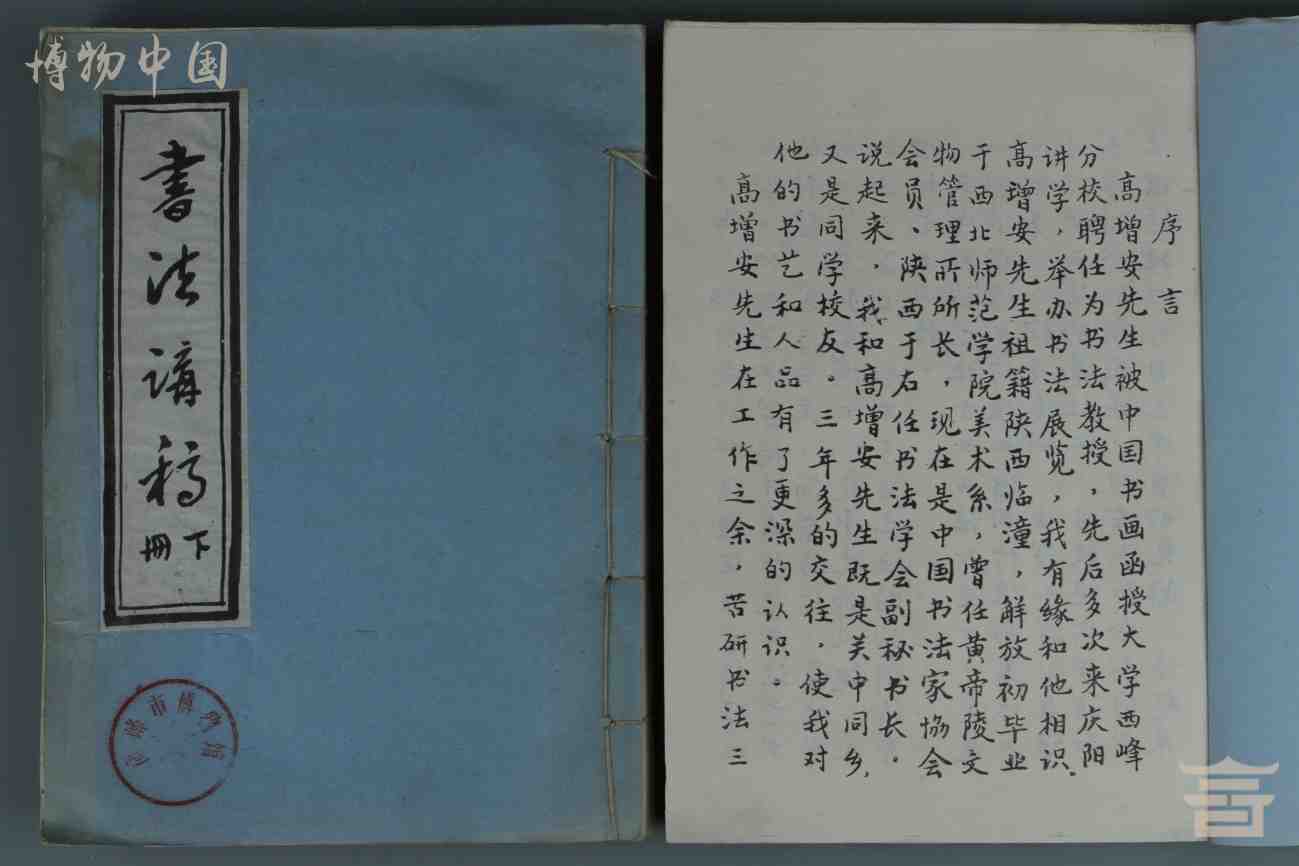 博物中国
書法講稿
下
冊
市博物館
序言
高增安先生被中国书画函授大学西峰
分校聘任为书法教授，先后多次来庆阳
讲学，举办书法展览，我有缘和他相识．
高增安先生祖籍陕西临潼，解放初毕业
于西北师范学院美术系，曾任黄帝陵文
物管理所所长，现在是中国书法家协会
会员、陕西于右任书法学会副秘书长。
说起来，我和高增安先生既是关中同乡，
又是同学校友。三年多的交往，使我对
他的书艺和人品有了更深的认识。
高增安先生在工作之余，苦研书法三